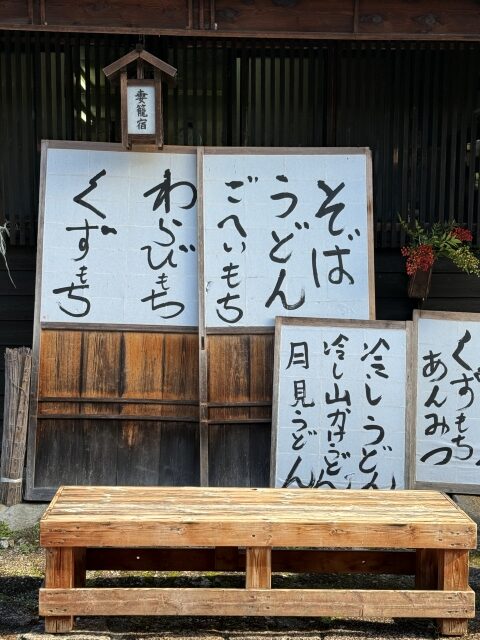 妻籠宿
そば
うどん
ごへいもち
わらびもち
くずもち
冷しうどん
冷し山かけうどん
月見うどん
くずもち
あんみつ